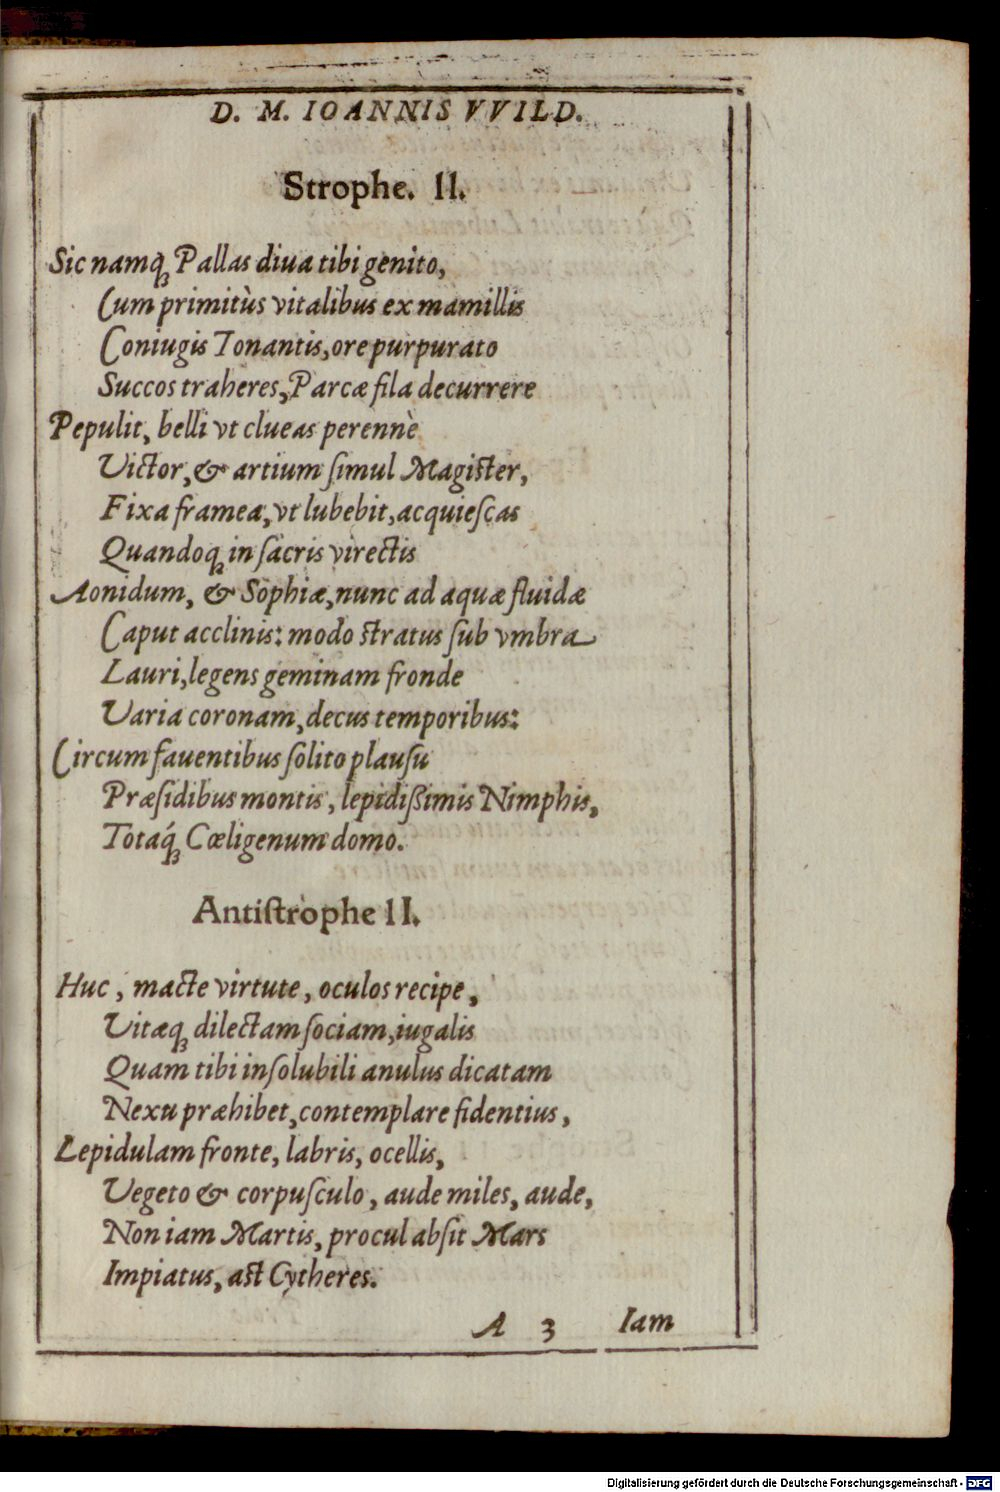 D. M. IOANNIS VVILD.
Strophe. II.
Sic namq́ꝫ Pallas diua tibi genito,
Cum primitùs vitalibus ex mamillis
Coniugis Tonantis, ore purpurato
Succos traheres, Parcæ fila decurrere
Pepulit, belli vt clueas perennè
Victor, & artium ſimul Magiſter,
Fixa framea, vt lubebit, acquieſcas
Quandoqꝫ in ſacris virectis
Aonidum, & Sophiæ, nunc ad aquæ fluidæ
Caput acclinis: modo ſtratus ſub vmbra
Lauri, legens geminam fronde
Varia coronam, decus temporibus:
Circum fauentibus ſolito plauſu
Præſidibus montis, lepidißimis Nimphis,
Totaq́ꝫ Cœligenum domo.
Antiſtrophe II.
Huc, macte virtute, oculos recipe,
Vitæqꝫ dilectam ſociam, iugalis
Quam tibi inſolubili anulus dicatam
Nexu præhibet, contemplare fidentius,
Lepidulam fronte, labris, ocellis,
Vegeto & corpuſculo, aude miles, aude,
Non iam Martis, procul abſit Mars
Impiatus, aſt Cytheres.
A 3 Iam
Digitalisierung gefördert durch die Deutsche Forschungsgemeinschaft - DFG